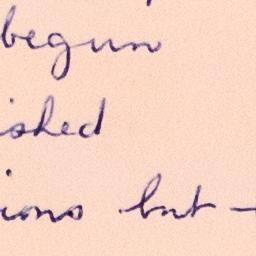 begun
ished
ions but –